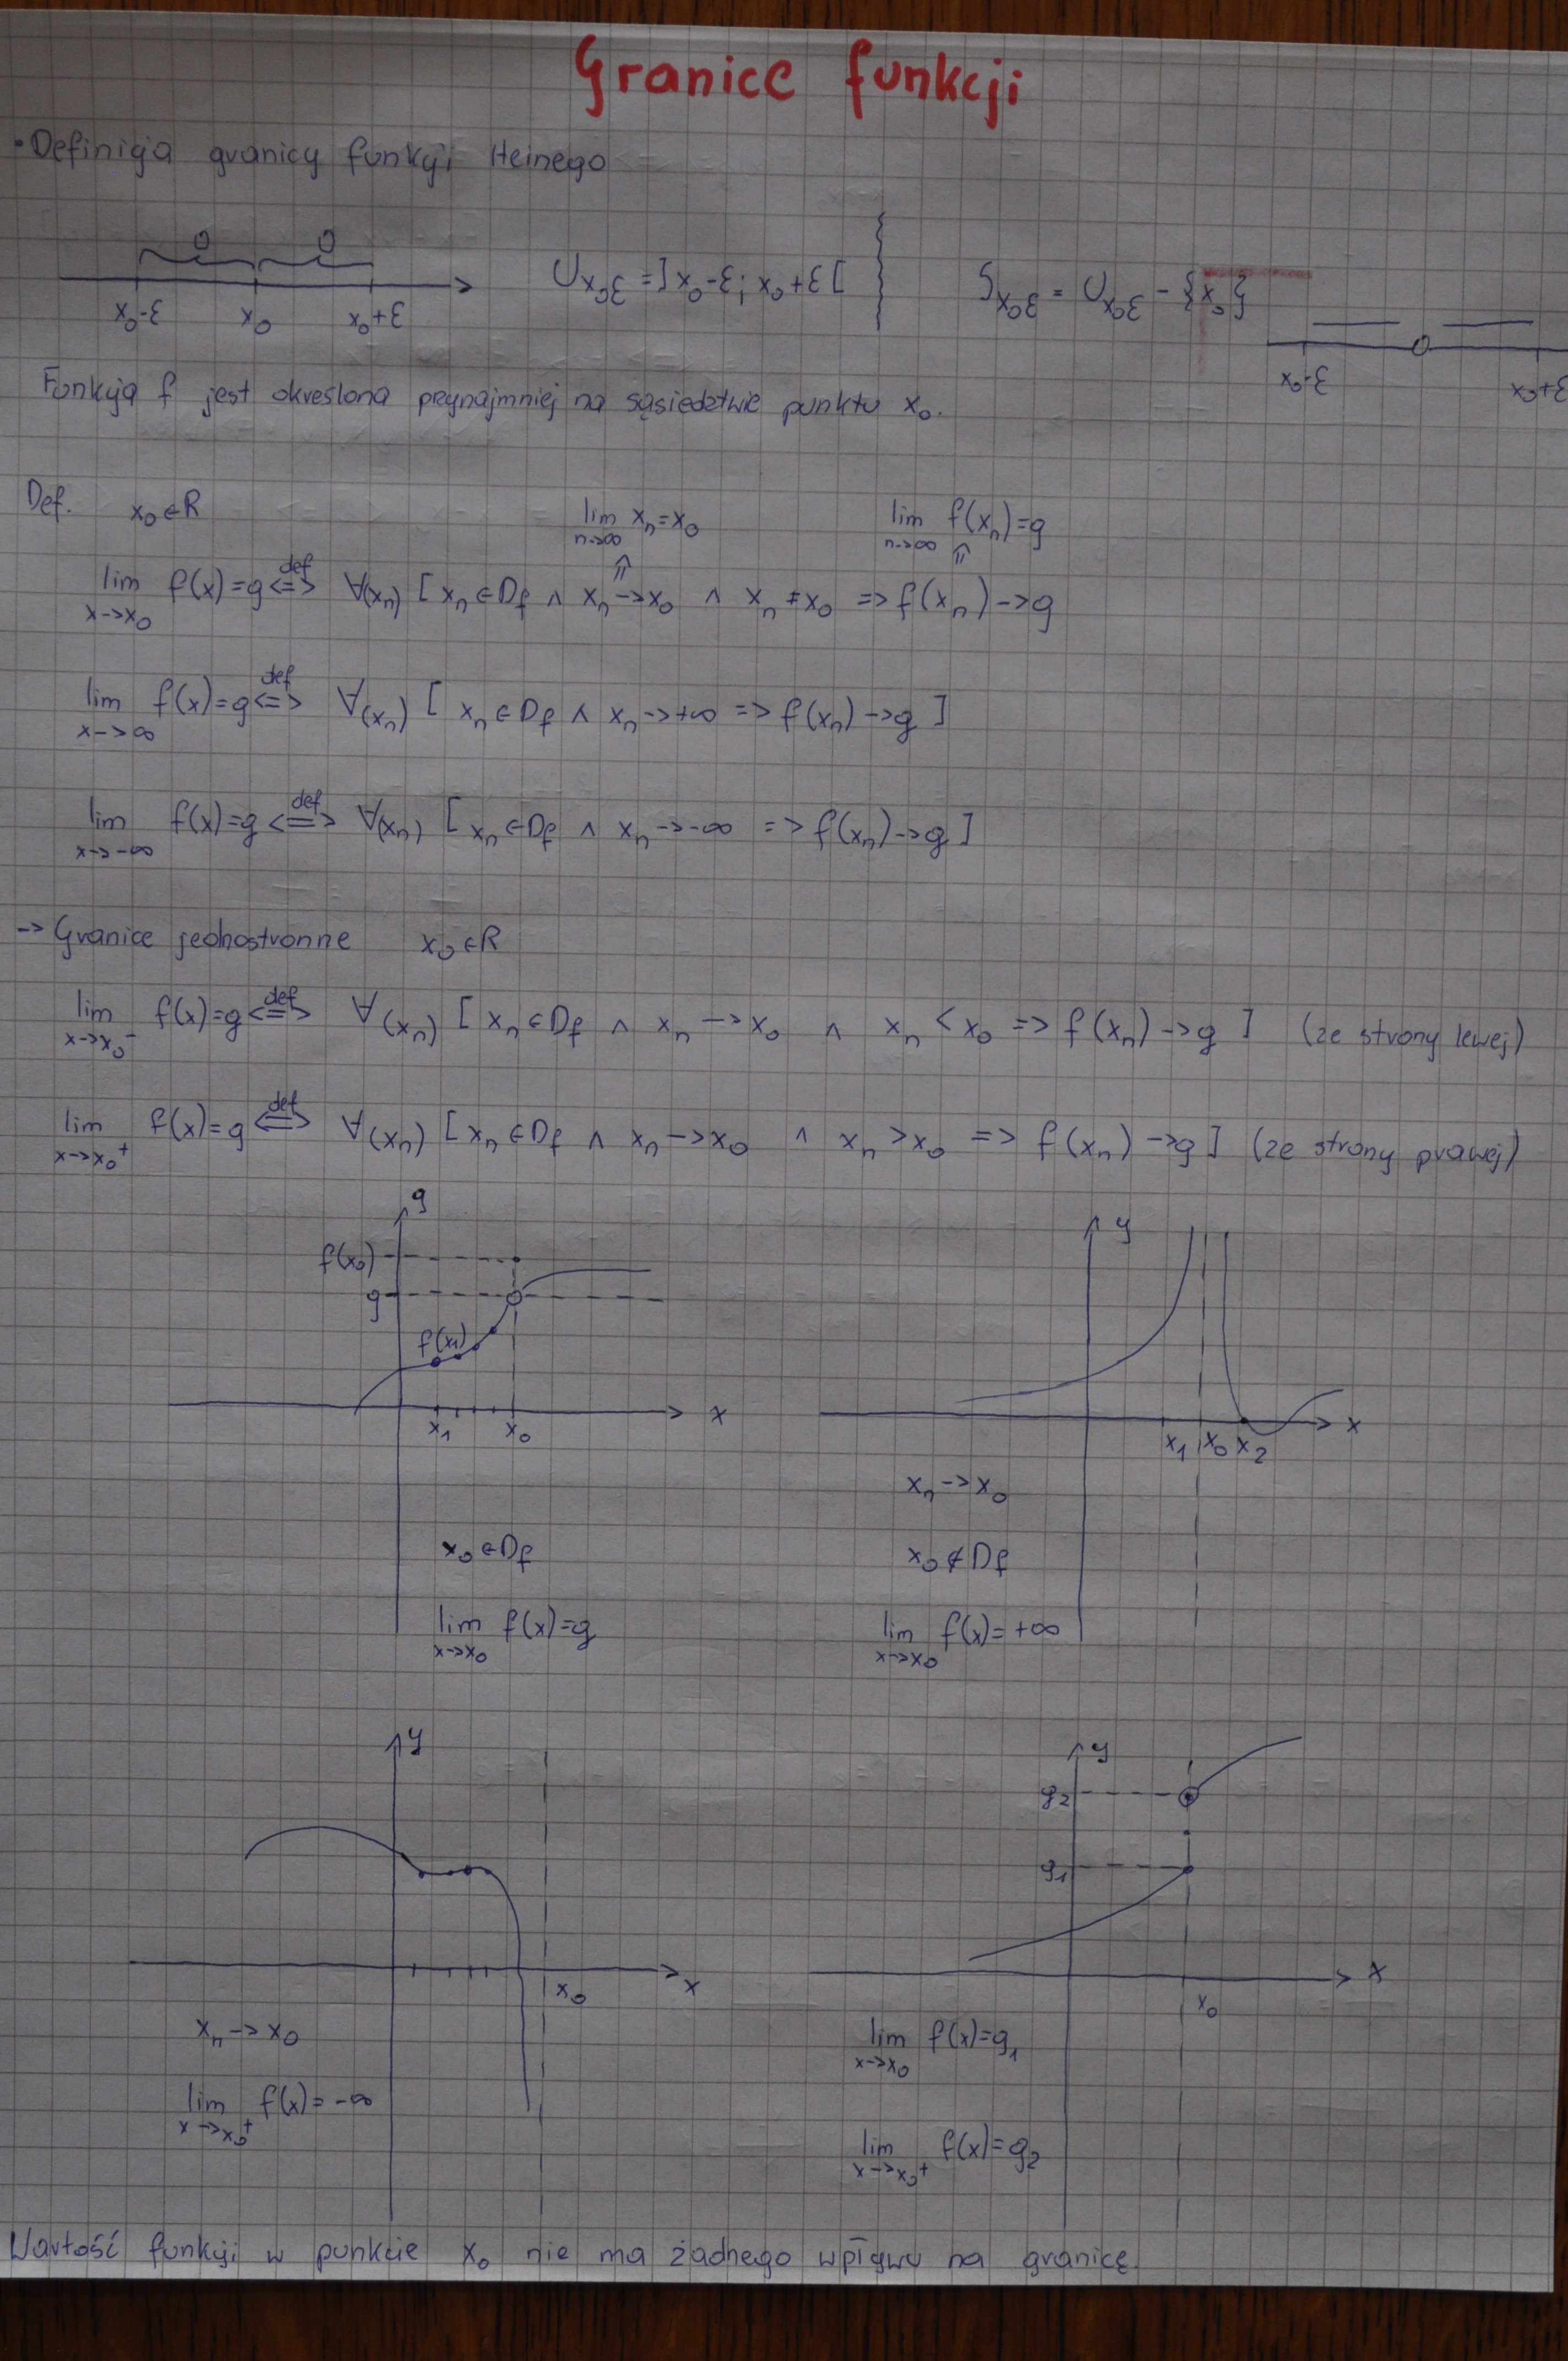 Granice funkcji
• Definicja granicy funkcji Heinego
x₀-ε x₀ x₀+ε
U x₀ε = ]x₀-ε; x₀+ε[
S x₀ε = U x₀ε - {x₀}
x₀-ε x₀+ε
Funkcja f jest określona przynajmniej na sąsiedztwie punktu x₀.
Def. x₀∈R
lim n->∞ xₙ=x₀
lim n->∞ f(xₙ)=g
⇑ ⇑
lim x->x₀ f(x)=g <=> def ∀(xₙ) [ xₙ∈Df ∧ xₙ->x₀ ∧ xₙ≠x₀ => f(xₙ)->g
lim x->∞ f(x)=g <=> def ∀(xₙ) [ xₙ∈Df ∧ xₙ->+∞ => f(xₙ)->g ]
lim x->-∞ f(x)=g <=> def ∀(xₙ) [ xₙ∈Df ∧ xₙ->-∞ => f(xₙ)->g ]
-> Granice jednostronne x₀∈R
lim x->x₀⁻ f(x)=g <=> def ∀(xₙ) [ xₙ∈Df ∧ xₙ->x₀ ∧ xₙ<x₀ => f(xₙ)->g ] (ze strony lewej)
lim x->x₀⁺ f(x)=g <=> def ∀(xₙ) [ xₙ∈Df ∧ xₙ->x₀ ∧ xₙ>x₀ => f(xₙ)->g ] (ze strony prawej)
g
f(x₀)
g
f(x₁)
x₁ x₀ x
x₀∈Df
lim x->x₀ f(x)=g
y
x₁ x₀ x₂ x
xₙ->x₀
x₀∉Df
lim x->x₀ f(x)=+∞
y
x₀ x
xₙ->x₀
lim x->x₀⁺ f(x)=-∞
y
g₂
g₁
x₀ x
lim x->x₀ f(x)=g₁
lim x->x₀⁺ f(x)=g₂
Wartość funkcji w punkcie x₀ nie ma żadnego wpływu na granicę.